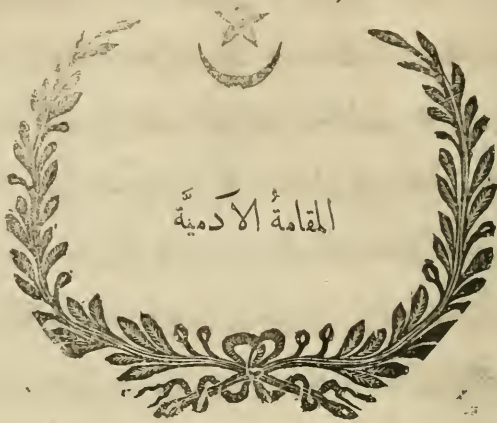 المقامةُ الآدميَّة